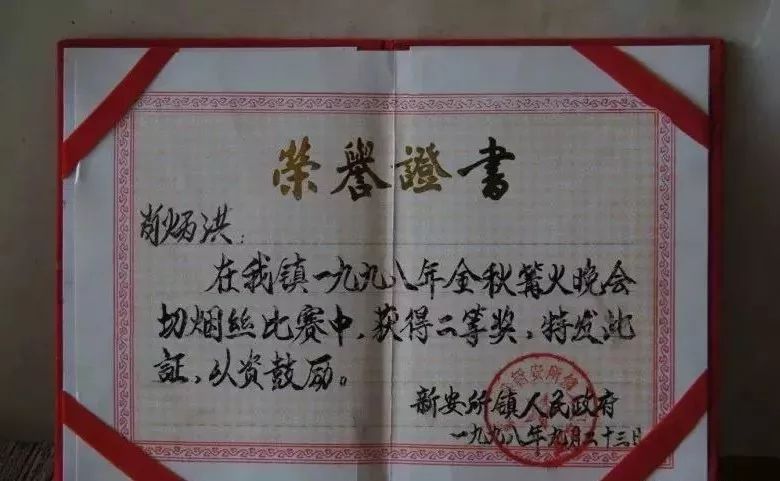 榮譽證書
肖炳洪：
在我镇一九九八年金秋篝火晚会
切烟丝比赛中，获得二等奖，特发此
证，以资鼓励。
新安所镇人民政府
一九九八年九月二十三日